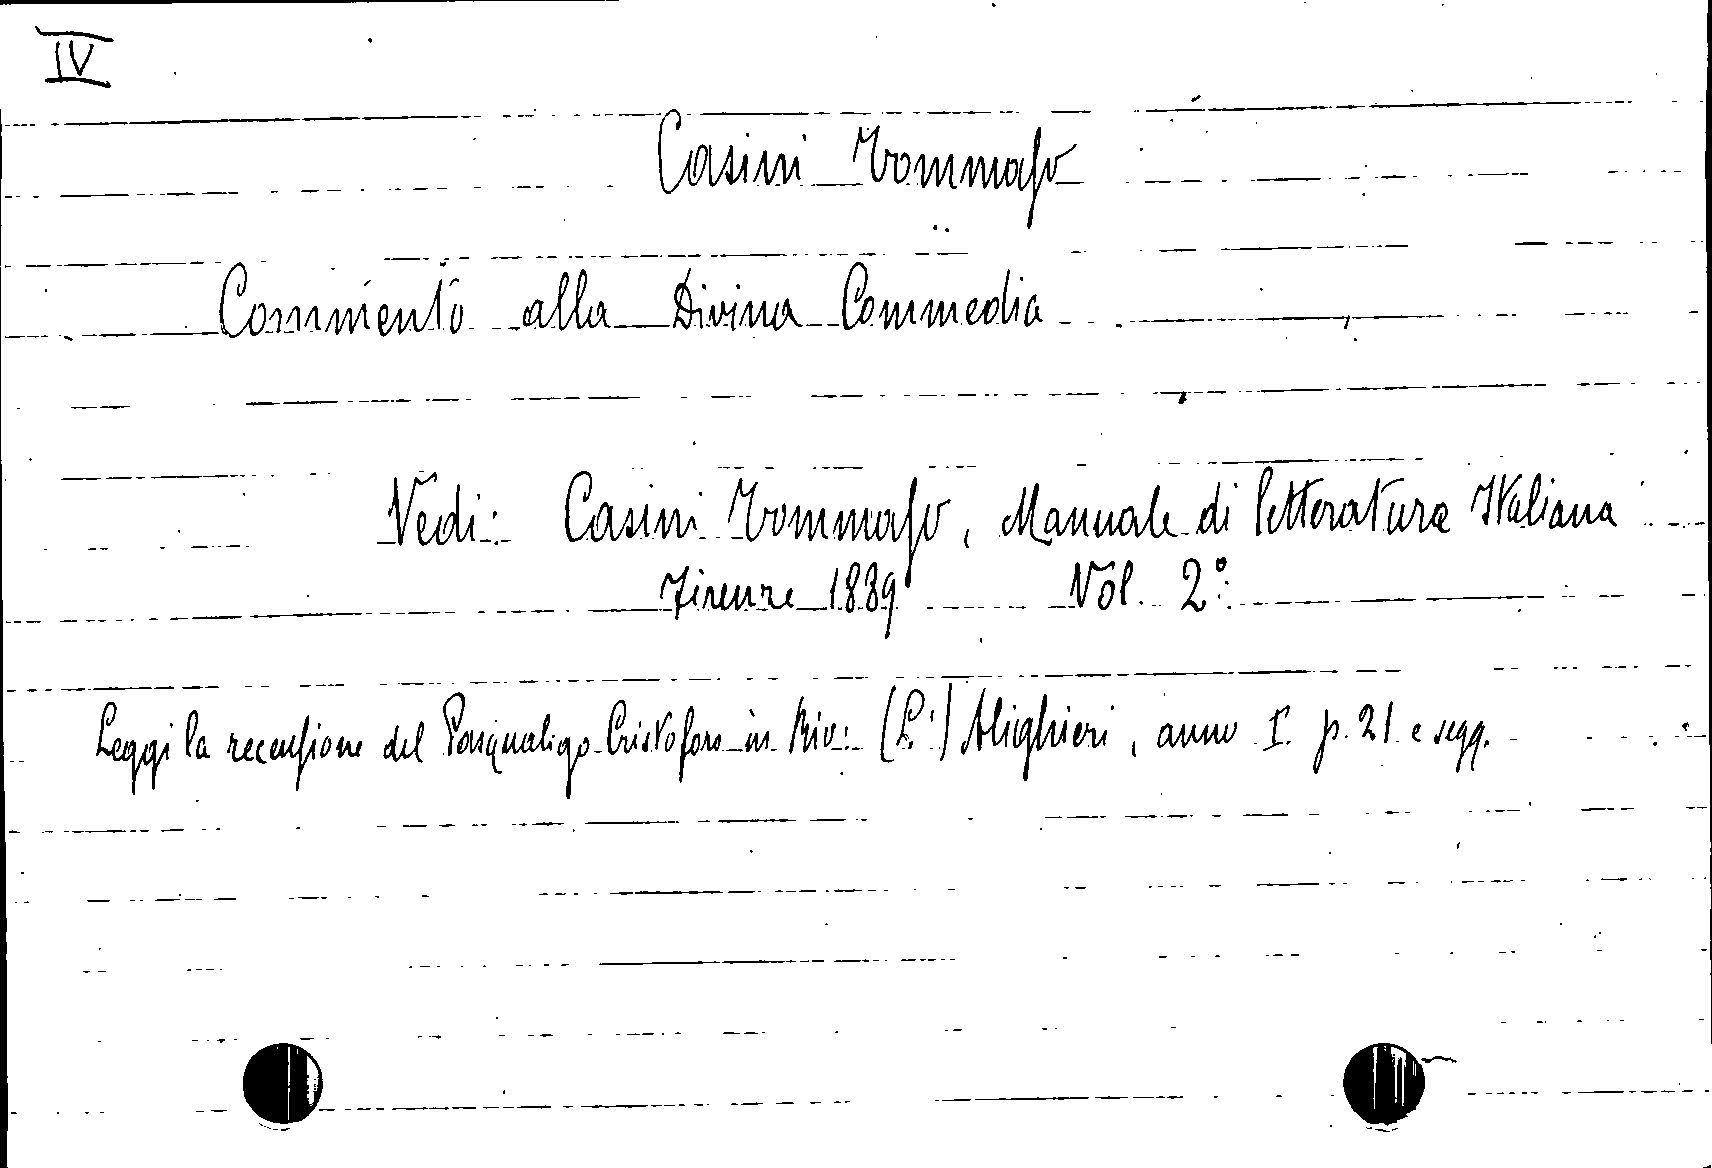 IV
Casini Tommaso
Commento alla Divina Commedia
Vedi: Casini Tommaso, Manuale di letteratura Italiana
Firenze 1889 Vol. 2°
Leggi la recensione del Pasqualigo Cristoforo in Riv: (L') Alighieri, anno I. p. 21 e segg.